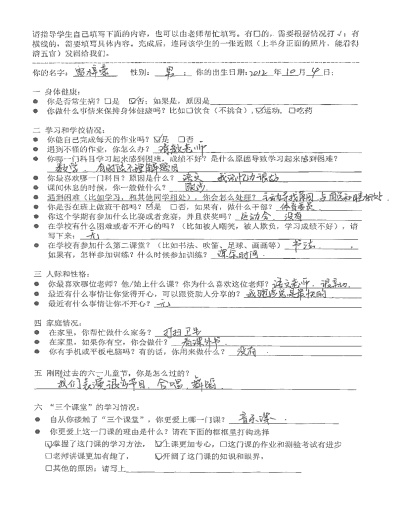 请指导学生自己填写下面的内容，也可以由老师帮忙填写。有口的，需要根据情况打√；有
横线的，需要填写具体内容。完成后，连同该学生的一张近照（上半身正面的照片，能看得
清五官）发回给我们。
你的名字： 性别：男；你的出生日期：2012年10月4日；
一 身体健康：
● 你是否常生病？□是 ☑否；如果是，原因是
● 你做什么事情来保持身体健康吗？比如□饮食（不挑食），☑运动，□吃药
二 学习和学校情况：
● 你能自己完成每天的作业吗？☑是 □否
● 遇到不懂的作业，你怎么办？请教老师
● 你哪一门科目学习起来感到困难，成绩不好？是什么原因导致学习起来感到困难？
数学，有时候不理解题目
● 你最喜欢哪一门科目？原因是什么？语文 我的记忆力很好
● 课间休息的时候，你一般做什么？
● 遇到困难（比如学习，和其他同学相处），你会怎么处理？
● 你是否在班上做班干部吗？☑是 □否，如果有，做什么干部？体育委员
● 你这个学期有参加什么比赛或者竞赛，并且获奖吗？运动会，没有
● 在学校有什么困难或者不开心的吗？（比如被人嘲笑，被人欺负，学习成绩不好），请
写下来：无
● 在学校有参加什么第二课堂？（比如书法、吹笛、足球、画画等）书法，
如果有，怎样参加训练？什么时候参加训练？课余时间
三 人际和性格：
● 你最喜欢哪位老师？他/她上什么课？你为什么喜欢这位老师？语文老师，很亲切
● 最近有什么事情让你觉得开心，可以跟资助人分享的？
● 最近有什么事情让你不开心？无
四 家庭情况：
● 在家里，你帮忙做什么家务？打扫卫生
● 在家里，如果你有空，你会做什么？看课外书
● 你有手机或平板电脑吗？有的话，你用来做什么？没有
五 刚刚过去的六一儿童节，你是怎么过的？
我们表演很多节目，合唱，舞蹈
六 “三个课堂”的学习情况：
● 自从你接触了“三个课堂”，你更爱上哪一门课？音乐课
● 你更爱上这一门课的理由是什么？请在下面的框框里打钩选择
☑掌握了这门课的学习方法，☑上课更加专心，□这门课的作业和测验考试有进步
□老师讲课更加有趣了， ☑开阔了这门课的知识和眼界，
□其他的原因：请写上